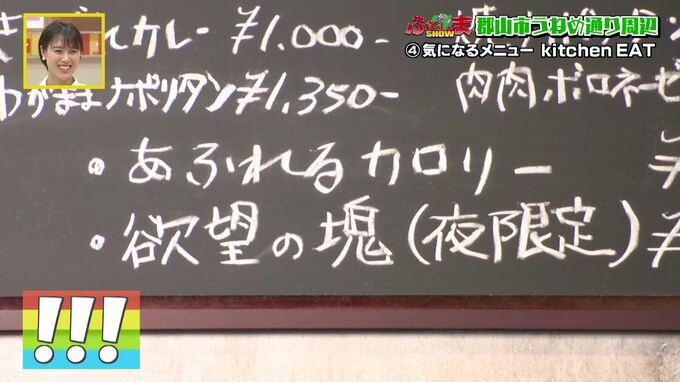 郡山市うねめ通り周辺
SHOW
④気になるメニュー kitchen EAT
カレー ¥1,000-
わがままナポリタン ¥1,350- 肉肉ボロネーゼ
・あふれるカロリー
・欲望の塊(夜限定)
!!!